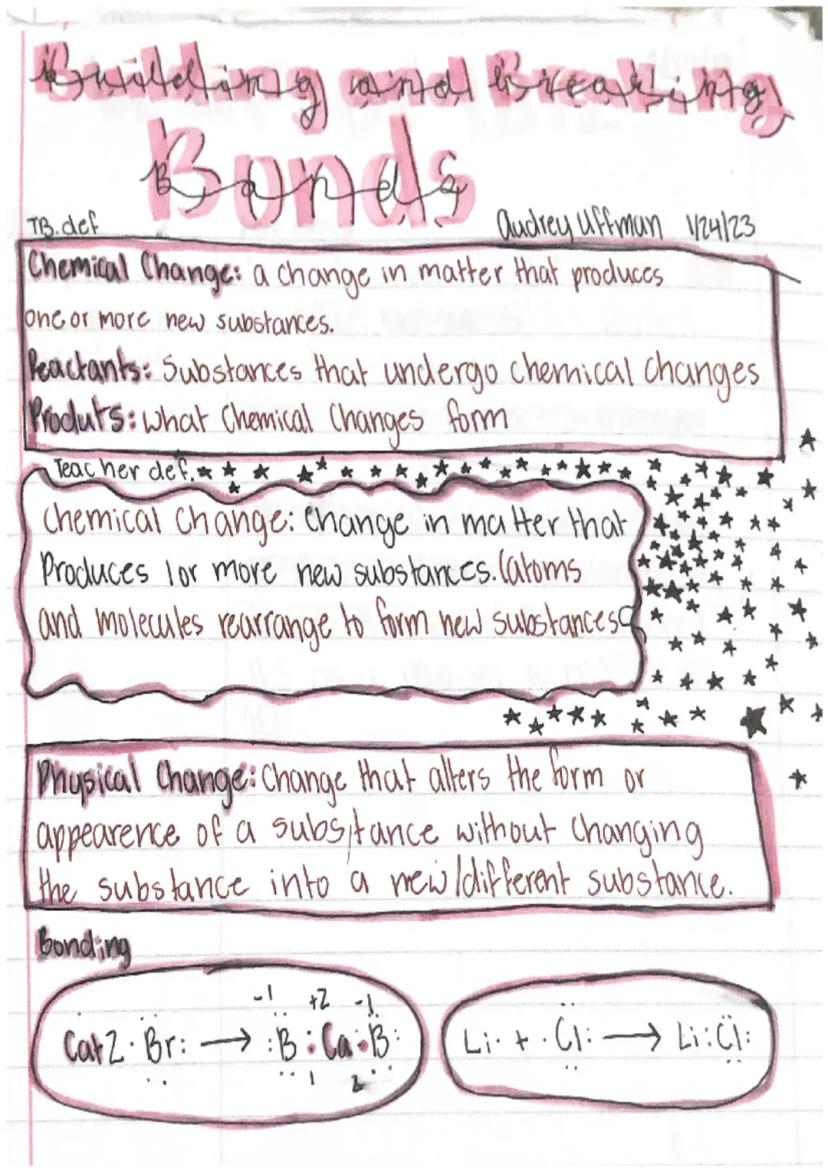 Building and Breaking
Bonds
TB. def
Audrey Uffman 1/24/23
Chemical Change: a change in matter that produces
one or more new substances.
Reactants: Substances that undergo chemical changes
Produts: what Chemical Changes form
Teacher def.
Chemical Change: Change in matter that
Produces 1 or more new substances. (atoms
and molecules rearrange to form new substances
Physical Change: Change that alters the form or
appearence of a substance without changing
the substance into a new/different substance.
Bonding
-1 +2 -1
Ca+2 · Br: → :B : Ca : B:
1 2
Li· + ·Cl: → Li:Cl: